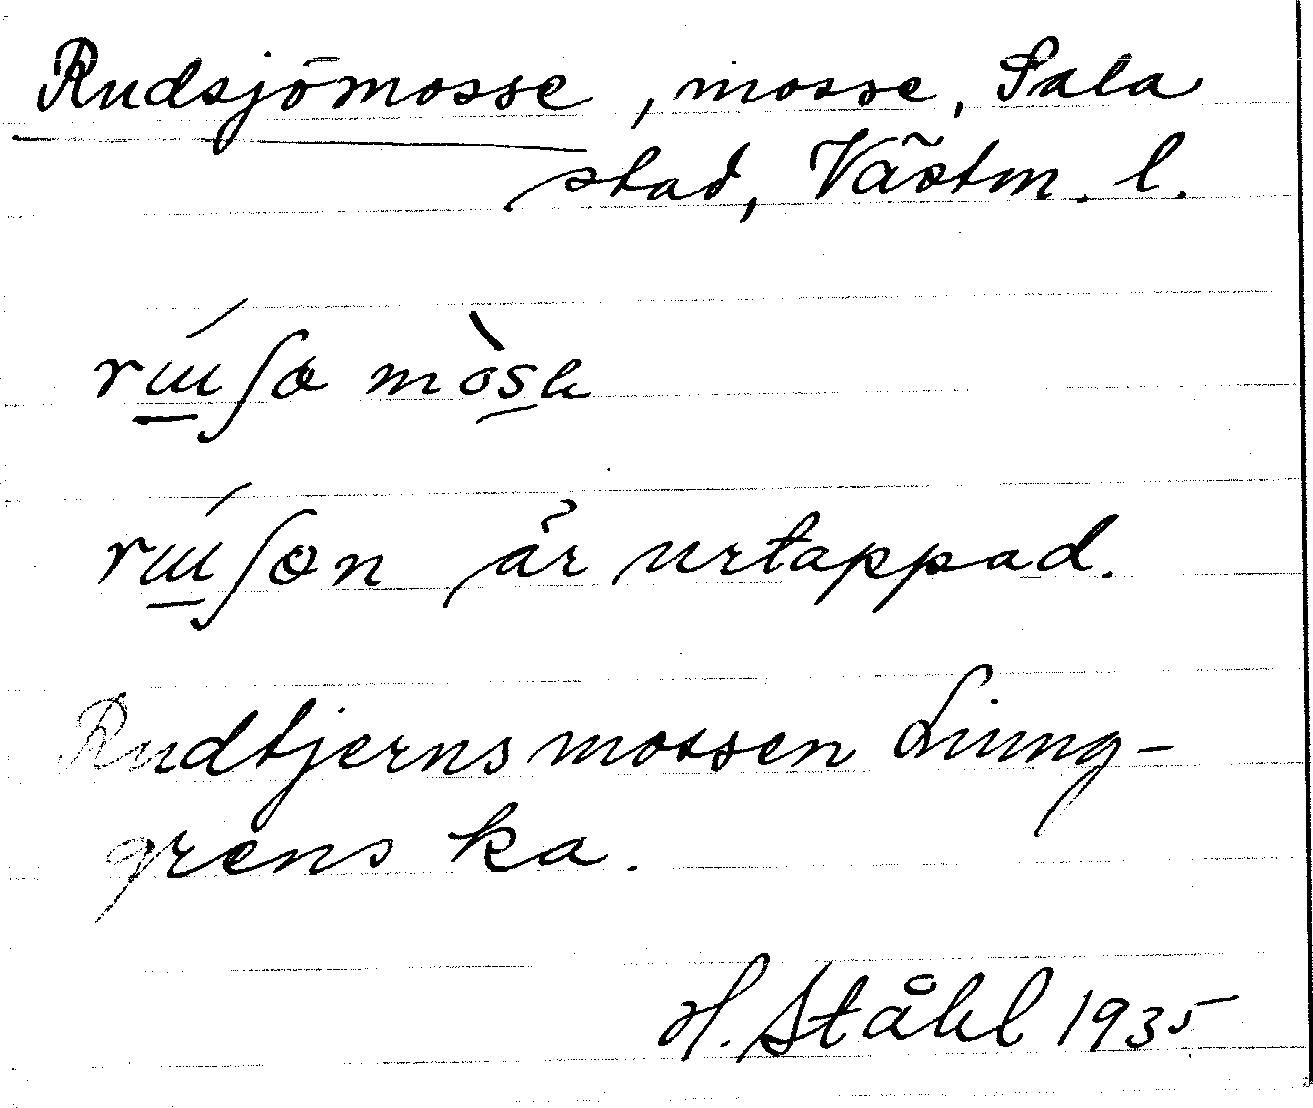 Rudsjömosse, mosse, Sala
stad, Västm. l.
är urtappad.
Rudtjernsmossen Ljung-
grens ka.
H. Ståhl 1935